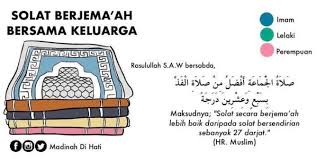 SOLAT BERJEMA'AH
BERSAMA KELUARGA
Imam
Lelaki
Perempuan
Rasulullah S.A.W bersabda,
صَلَاةُ الْجَمَاعَةِ أَفْضَلُ مِنْ صَلَاةِ الْفَذِّ
بِسَبْعٍ وَعِشْرِينَ دَرَجَةً
Maksudnya; "Solat secara berjema'ah
lebih baik daripada solat bersendirian
sebanyak 27 darjat."
(HR. Muslim)
Madinah Di Hati